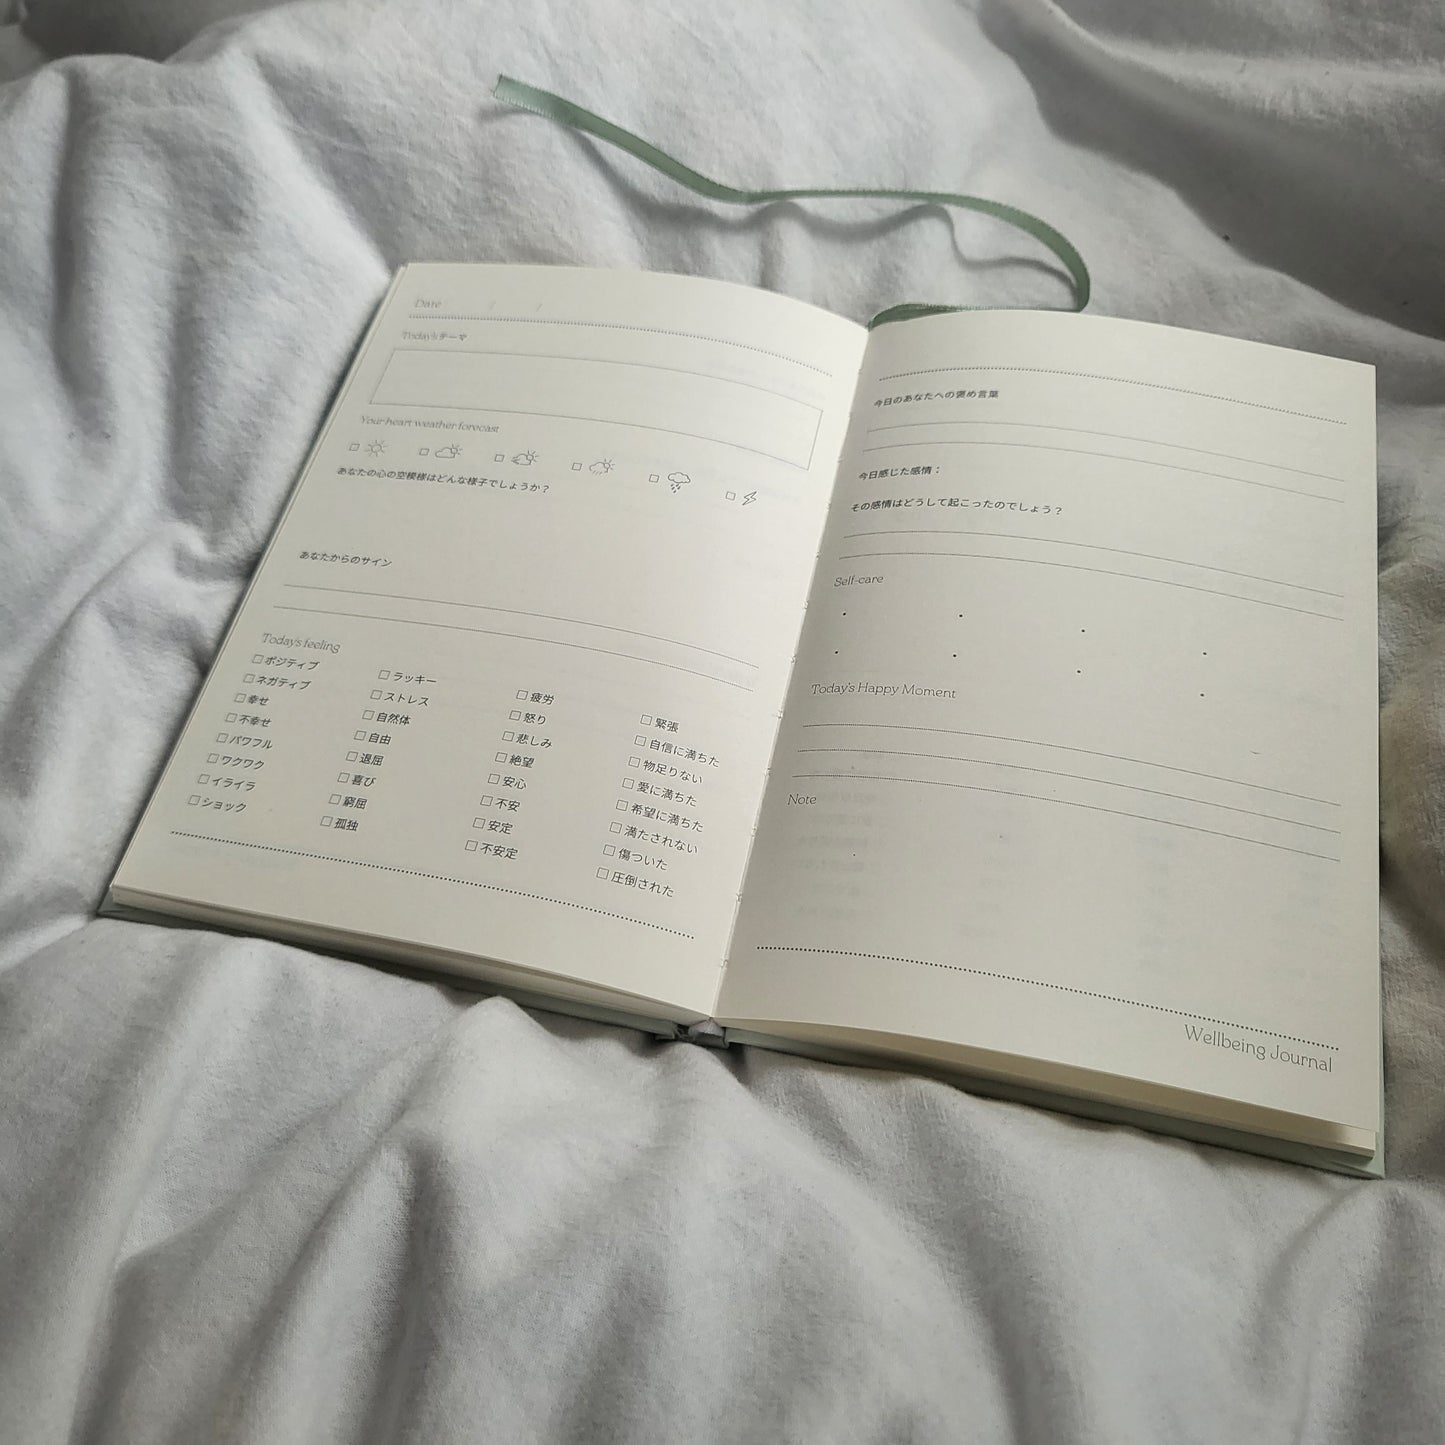 Date / /
Today'sテーマ
Your heart weather forecast
あなたの心の空模様はどんな様子でしょうか？
あなたからのサイン
Today's feeling
□ポジティブ
□ネガティブ
□幸せ
□不幸せ
□パワフル
□ワクワク
□イライラ
□ショック
□ラッキー
□ストレス
□自然体
□自由
□退屈
□喜び
□窮屈
□孤独
□疲労
□怒り
□悲しみ
□絶望
□安心
□不安
□安定
□不安定
□緊張
□自信に満ちた
□物足りない
□愛に満ちた
□希望に満ちた
□満たされない
□傷ついた
□圧倒された
今日のあなたへの褒め言葉
今日感じた感情：
その感情はどうして起こったのでしょう？
Self-care
Today's Happy Moment
Note
Wellbeing Journal